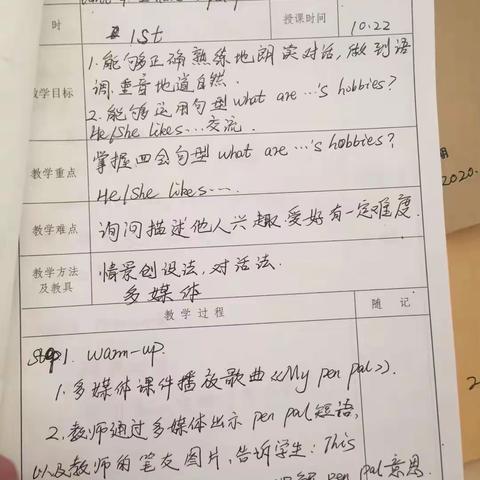 时 1st 授课时间 10.22
教学目标
1.能够正确熟练地朗读对话,做到语
调、重音地道自然.
2.能够运用句型what are …'s hobbies?
He/She likes…交流.
教学重点
掌握四会句型 what are …'s hobbies?
He/She likes….
教学难点
询问描述他人兴趣、爱好有一定难度.
教学方法
及教具
情景创设法,对话法
多媒体
教学过程 随记
Step1. warm-up.
1.多媒体课件播放歌曲《My pen pal》.
2.教师通过多媒体出示pen pal短语,
以及教师的笔友图片,告诉学生:This
pen pal意思.
2020.